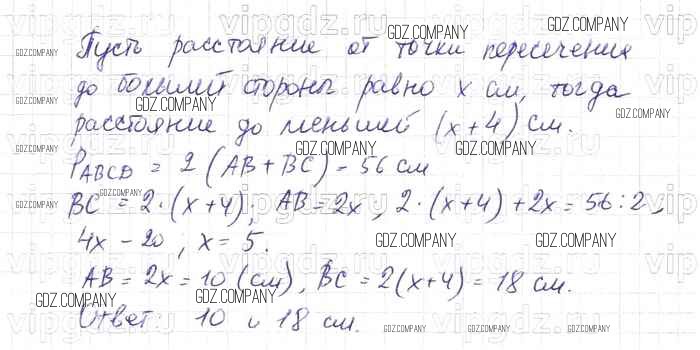 Пусть расстояние от точки пересечения
до большей стороны равно x см, тогда
расстояние до меньшей (x+4) см.
P ABCD = 2 (AB + BC) - 56 см
BC = 2·(x+4), AB = 2x, 2·(x+4)+2x = 56:2,
4x - 20; x = 5.
AB = 2x = 10 (см), BC = 2(x+4) = 18 см.
Ответ: 10 и 18 см.
GDZ.COMPANY
vipgdz.ru